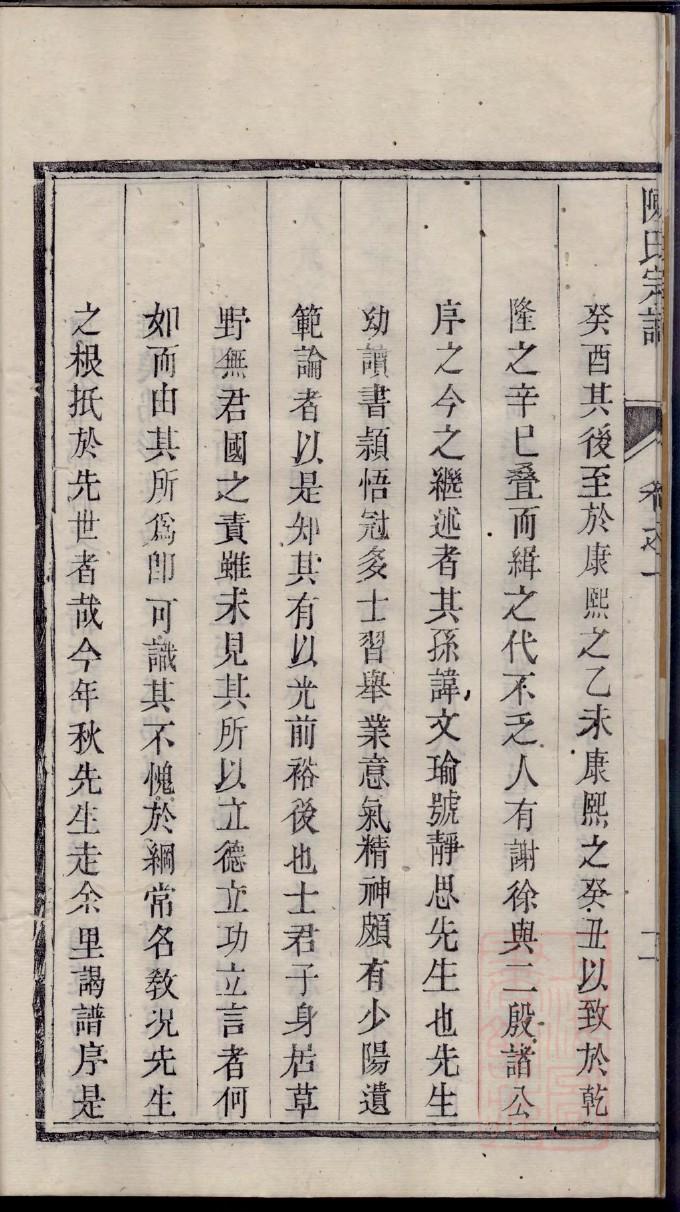 陳氏宗譜
卷之一
二
癸酉其後至於康熙之乙未康熙之癸丑以致於乾
隆之辛巳叠而緝之代不乏人有謝徐與二殷諸公
序之今之繼述者其孫諱文瑜號靜思先生也先生
幼讀書穎悟冠多士習舉業意氣精神頗有少陽遺
範論者以是知其有以光前裕後也士君子身居草
野無君國之責雖未見其所以立德立功立言者何
如而由其所爲卽可識其不愧於綱常名敎况先生
之根抵於先世者哉今年秋先生走余里謁譜序是